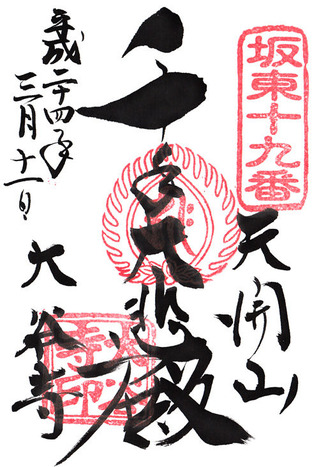 坂東十九番
天開山
千手大悲殿
大谷寺
平成二十四年
三月十一日
大谷寺印